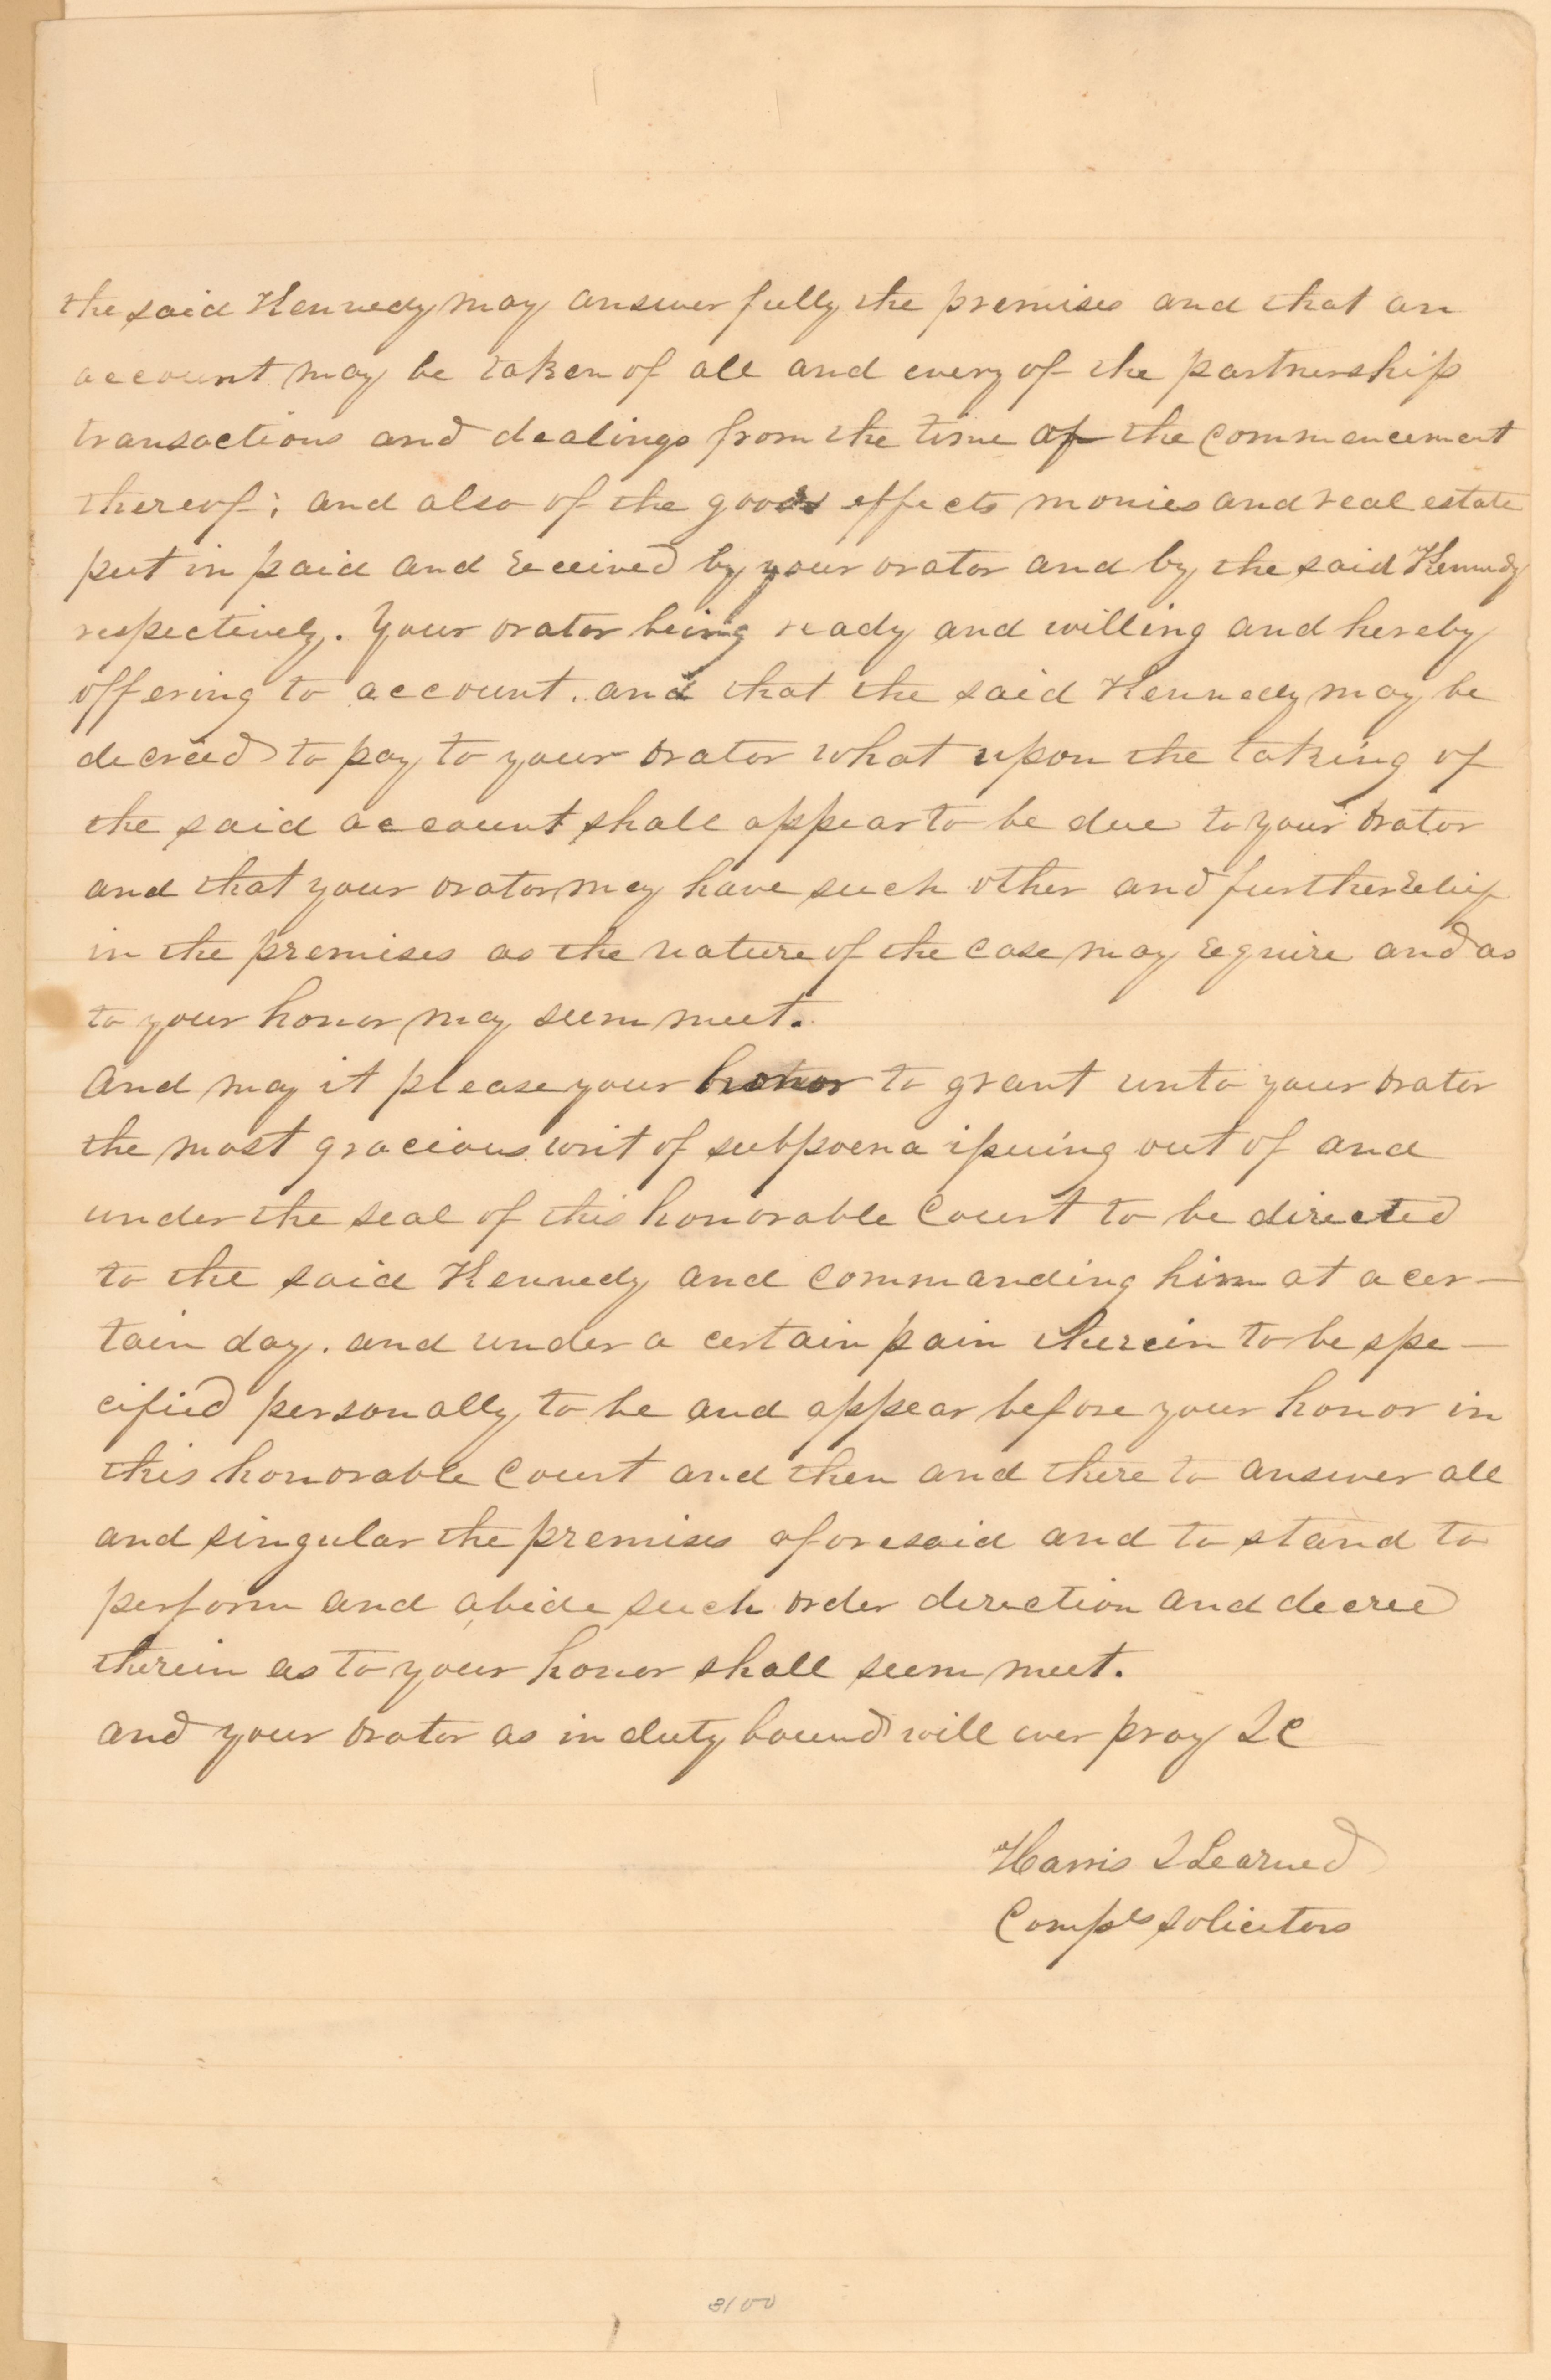 the said Kennedy may answer fully the premises and that an
account may be taken of all and every of the partnership
transactions and dealings from the time of the commencement
thereof; and also of the goods effects monies and real estate
put in paid and received by your orator and by the said Kennedy
respectively. Your orator being ready and willing and hereby
offering to account. and that the said Kennedy may be
decreed to pay to your orator what upon the taking of
the said account shall appear to be due to your orator
and that your orator may have such other and further relief
in the premises as the nature of the case may require and as
to your honor may seem meet.
And may it please your honor to grant unto your orator
the most gracious writ of subpoena issuing out of and
under the seal of this honorable Court to be directed
to the said Kennedy and commanding him at a cer-
tain day. and under a certain pain therein to be spe-
cified personally to be and appear before your honor in
this honorable Court and then and there to answer all
and singular the premises aforesaid and to stand to
perform and abide such order direction and decree
therein as to your honor shall seem meet.
and your orator as in duty bound will ever pray &c
Harris & Learned
Compls Solicitors
8100